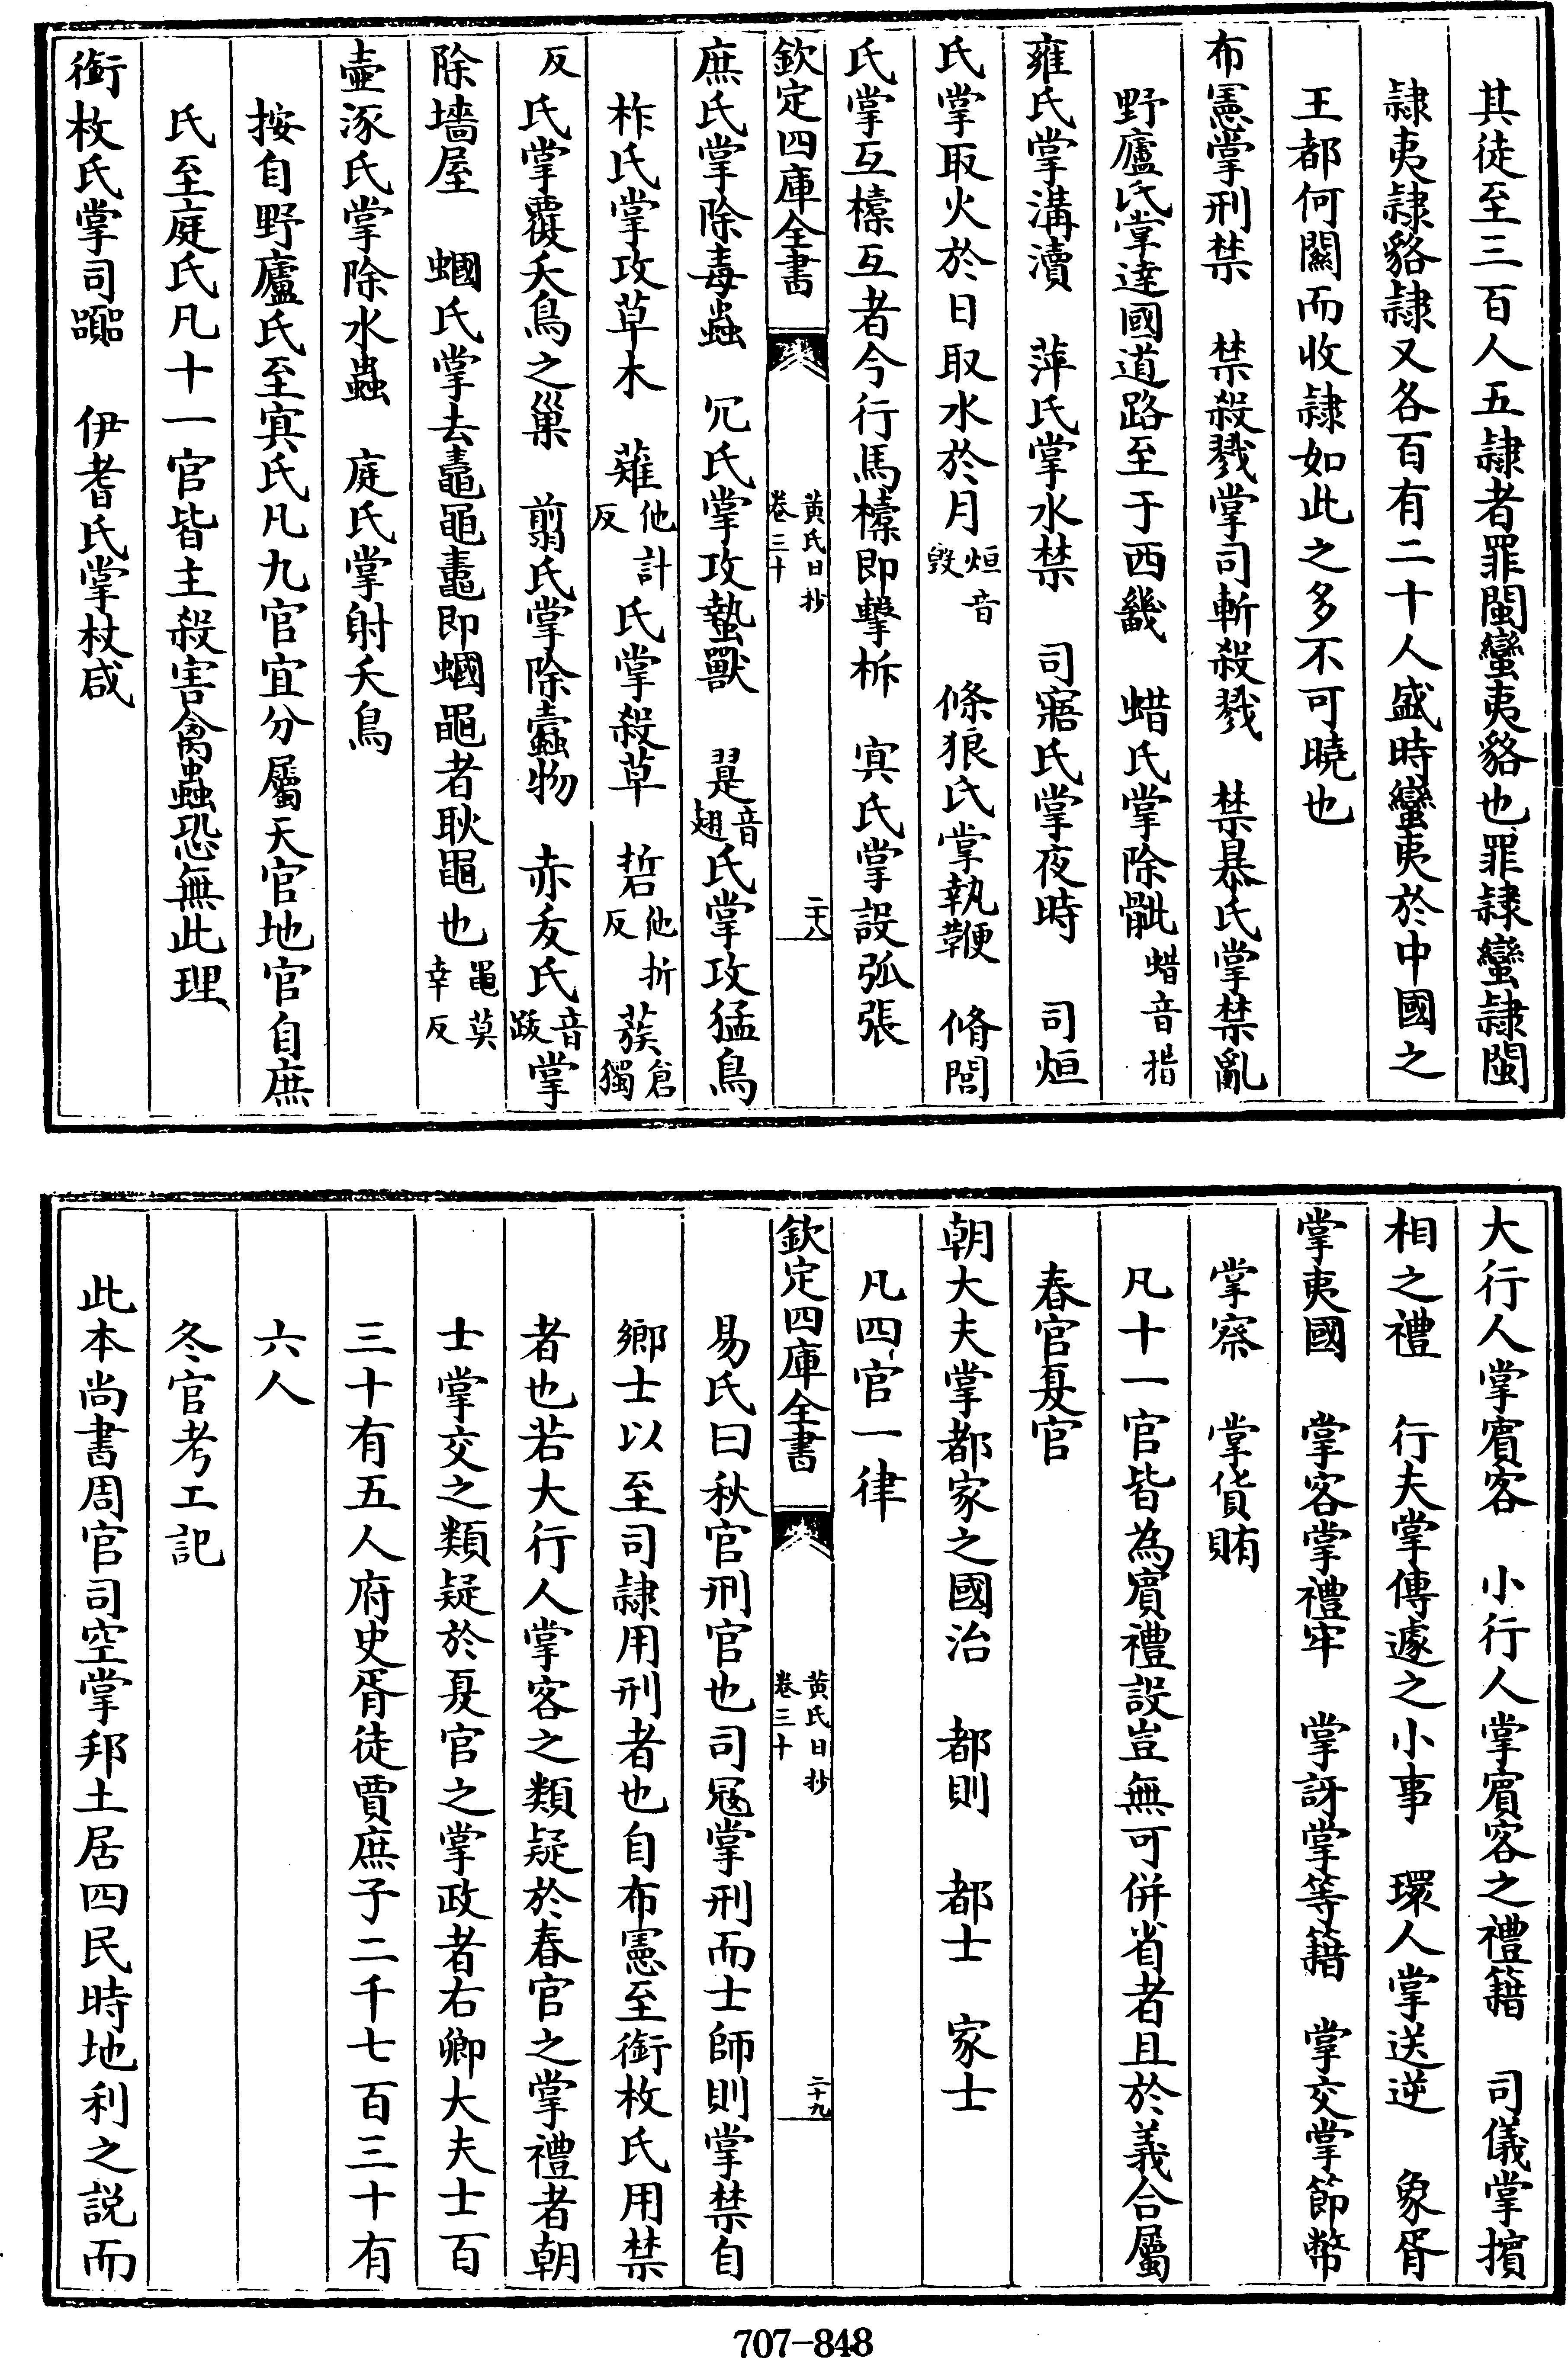 其徒至三百人五隷者罪閩蠻夷貉也罪隷蠻隷閩
隷夷隷貉隷又各百有二十人盛時蠻夷於中國之
王都何關而收隷如此之多不可曉也
布憲掌刑禁　禁殺戮掌司斬殺戮　禁暴氏掌禁亂
野廬氏掌達國道路至于四畿　蜡氏掌除骴蜡音措
雍氏掌溝瀆　萍氏掌水禁　司寤氏掌夜時　司烜
氏掌取火於日取水於月烜音毁　條狼氏掌執鞭　脩閭
氏掌互㯓互者今行馬㯓即擊柝　㝠氏掌設弧張
欽定四庫全書　黄氏日抄卷三十　二十八
庶氏掌除毒蟲　冗氏掌攻蟄獸　翨音翅氏掌攻猛鳥
柞氏掌攻草木　薙他計反氏掌殺草　硩他折反蔟倉獨
反氏掌覆夭鳥之巢　翦氏掌除蠧物　赤犮氏音跋掌
除墻屋　蟈氏掌去鼃黽鼃即蟈黽者耿黽也黽莫幸反
壷涿氏掌除水蟲　庭氏掌射夭鳥
按自野廬氏至㝠氏凡九官宜分屬天官地官自庶
氏至庭氏凡十一官皆主殺害禽蟲恐無此理
銜枚氏掌司嚻　伊耆氏掌杖咸
大行人掌賓客　小行人掌賓客之禮籍　司儀掌擯
相之禮　行夫掌傳遽之小事　環人掌送逆　象胥
掌夷國　掌客掌禮牢　掌訝掌等籍　掌交掌節幣
掌察　掌貨賄
凡十一官皆為賓禮設豈無可併省者且於義合屬
春官夏官
朝大夫掌都家之國治　都則　都士　家士
凡四官一律
欽定四庫全書　黄氏日抄卷三十　二十九
易氏曰秋官刑官也司冦掌刑而士師則掌禁自
鄉士以至司隷用刑者也自布憲至銜枚氏用禁
者也若大行人掌客之類疑於春官之掌禮者朝
士掌交之類疑於夏官之掌政者右卿大夫士百
三十有五人府史胥徒賈庶子二千七百三十有
六人
冬官考工記
此本尚書周官司空掌邦土居四民時地利之説而
707-848